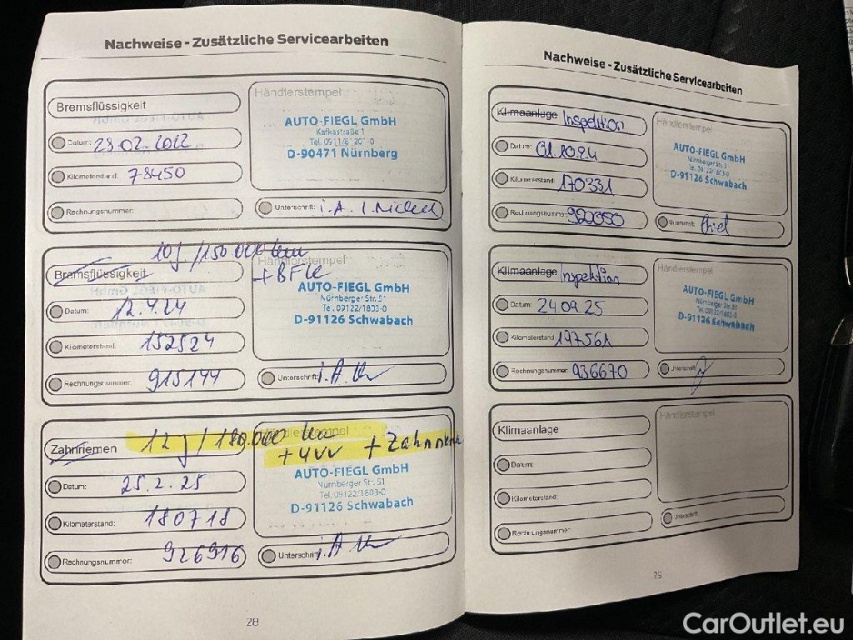 Nachweise - Zusätzliche Servicearbeiten
Bremsflüssigkeit
Händlerstempel
Datum: 23.02.2022
AUTO-FIEGL GmbH
Kafkastraße 1
D-90471 Nürnberg
Kilometerstand: 78450
Rechnungsnummer:
Unterschrift: i.A.
10J/150.000 km
+BFL
Bremsflüssigkeit
Händlerstempel
Datum: 12.4.24
AUTO-FIEGL GmbH
Nürnberger Str. 51
Tel. 09122/1803-0
D-91126 Schwabach
Kilometerstand: 152524
Rechnungsnummer: 915144
Unterschrift: i.A.
12J/180.000 km
+ 4VV + Zahnriemen
Zahnriemen
Händlerstempel
Datum: 25.2.25
AUTO-FIEGL GmbH
Nürnberger Str. 51
Tel. 09122/1803-0
D-91126 Schwabach
Kilometerstand: 180718
Rechnungsnummer: 926916
Unterschrift: i.A.
28
Nachweise - Zusätzliche Servicearbeiten
Klimaanlage Inspektion
Händlerstempel
Datum: 01.10.24
AUTO-FIEGL GmbH
D-91126 Schwabach
Kilometerstand: 170331
Rechnungsnummer: 920050
Unterschrift:
Klimaanlage Inspektion
Händlerstempel
Datum: 24.09.25
AUTO-FIEGL GmbH
Nürnberger Str. 51
Tel. 09122/1803-0
D-91126 Schwabach
Kilometerstand: 197561
Rechnungsnummer: 936670
Unterschrift:
Klimaanlage
Händlerstempel
Datum:
Kilometerstand:
Rechnungsnummer:
Unterschrift:
CarOutlet.eu